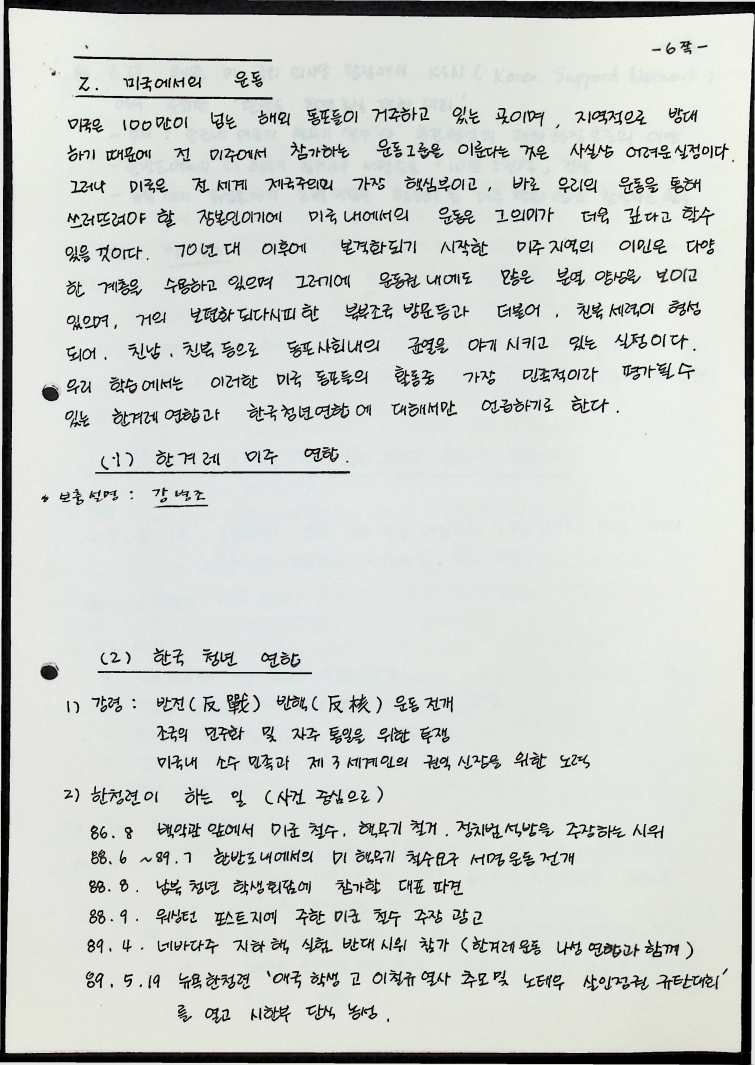 -6쪽-
2. 미국에서의 운동
미국은 100만이 넘는 해외 동포들이 거주하고 있는 곳이며, 지역적으로 방대
하기 때문에 전 미주에서 참가하는 운동그룹은 이룬다는 것은 사실상 어려운 실정이다.
그러나 미국은 전 세계 제국주의의 가장 핵심부이고, 바로 우리의 운동을 통해
쓰러뜨려야 할 장본인이기에 미국내에서의 운동은 그의미가 더욱 깊다고 할수
있을 것이다. 70년대 이후에 본격화되기 시작한 미주지역의 이민은 다양
한 계층을 수용하고 있으며 그러기에 운동권내에도 많은 분열 양상을 보이고
있으며, 거의 보편화되다시피한 북부조국 방문등과 더불어, 친북세력이 형성
되어, 친남, 친북등으로 동포사회내의 균열을 야기시키고 있는 실정이다.
우리 학습에서는 이러한 미국 동포들의 활동중 가장 민족적이라 평가될 수
있는 한겨레 연합과 한국청년연합에 대해서만 언급하기로 한다.
(1) 한겨레 미주 연합.
* 보충설명 : 강병조
(2) 한국 청년 연합
1) 강령 : 반전(反戰) 반핵(反核) 운동 전개
조국의 민주화 및 자주 통일을 위한 투쟁
미국내 소수 민족과 제3세계인의 권익 신장을 위한 노력
2) 한청련이 하는 일 (사건 중심으로)
86. 8 백악관 앞에서 미군 철수, 핵무기 철거, 정치범석방을 주장하는 시위
88. 6 ~ 89. 7 한반도내에서의 미 핵무기 철수요구 서명운동 전개
88. 8. 남북 청년 학생회담에 참가할 대표 파견
88. 9. 워싱턴 포스트지에 주한 미군 철수 주장 광고
89. 4. 네바다주 지하 핵 실험 반대시위 참가 (한겨레운동 나성 연합과 함께)
89. 5. 19 뉴욕한청련 '애국 학생 고 이철규열사 추모및 노태우 살인정권 규탄대회'
를 열고 시한부 단식 농성.